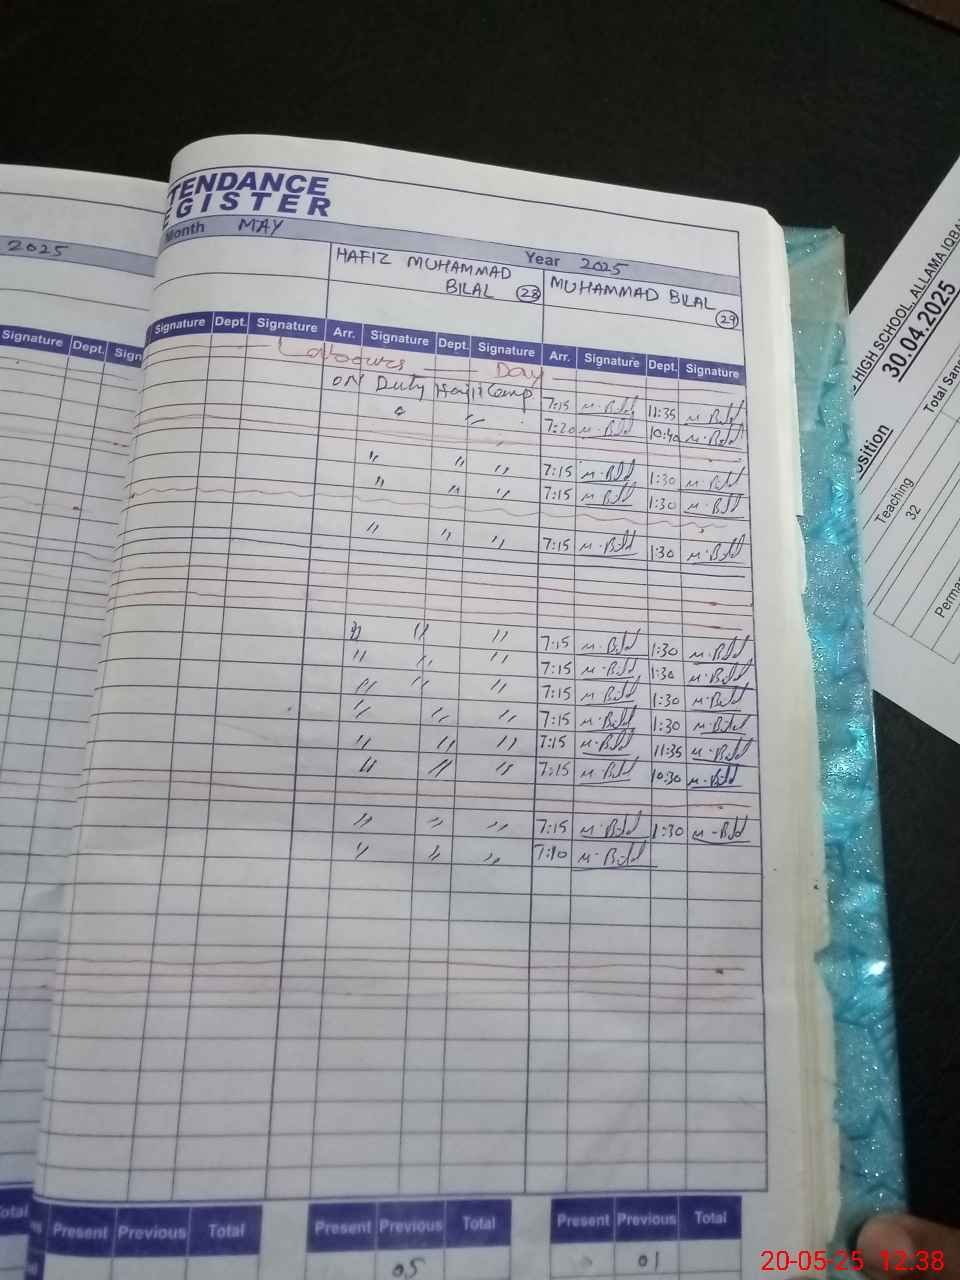 TENDANCE
EGISTER
Month MAY Year 2025
2025
HAFIZ MUHAMMAD
BILAL 28
MUHAMMAD BILAL
29
Signature Dept. Sign
Signature Dept. Signature Arr. Signature Dept. Signature Arr. Signature Dept. Signature
Day
ON Duty Hajj Camp
7:15 M-Bilal 11:35 M-Bilal
" " 7:20 M-Bilal 10:40 M-Bilal
" " " 7:15 M-Bilal 1:30 M-Bilal
" " " 7:15 M-Bilal 1:30 M-Bilal
" " " 7:15 M-Bilal 1:30 M-Bilal
" " " 7:15 M-Bilal 1:30 M-Bilal
" " " 7:15 M-Bilal 1:30 M-Bilal
" " " 7:15 M-Bilal 1:30 M-Bilal
" " " 7:15 M-Bilal 1:30 M-Bilal
" " " 7:15 M-Bilal 11:35 M-Bilal
" " " 7:15 M-Bilal 10:30 M-Bilal
" " " 7:15 M-Bilal 1:30 M-Bilal
" " " 7:10 M-Bilal
Total Present Previous Total Present Previous Total Present Previous Total
05 01
HIGH SCHOOL, ALLAMA IQBA
30.04.2025
Total Sanc
osition
Teaching
32
Perma
20-05-25 12:38